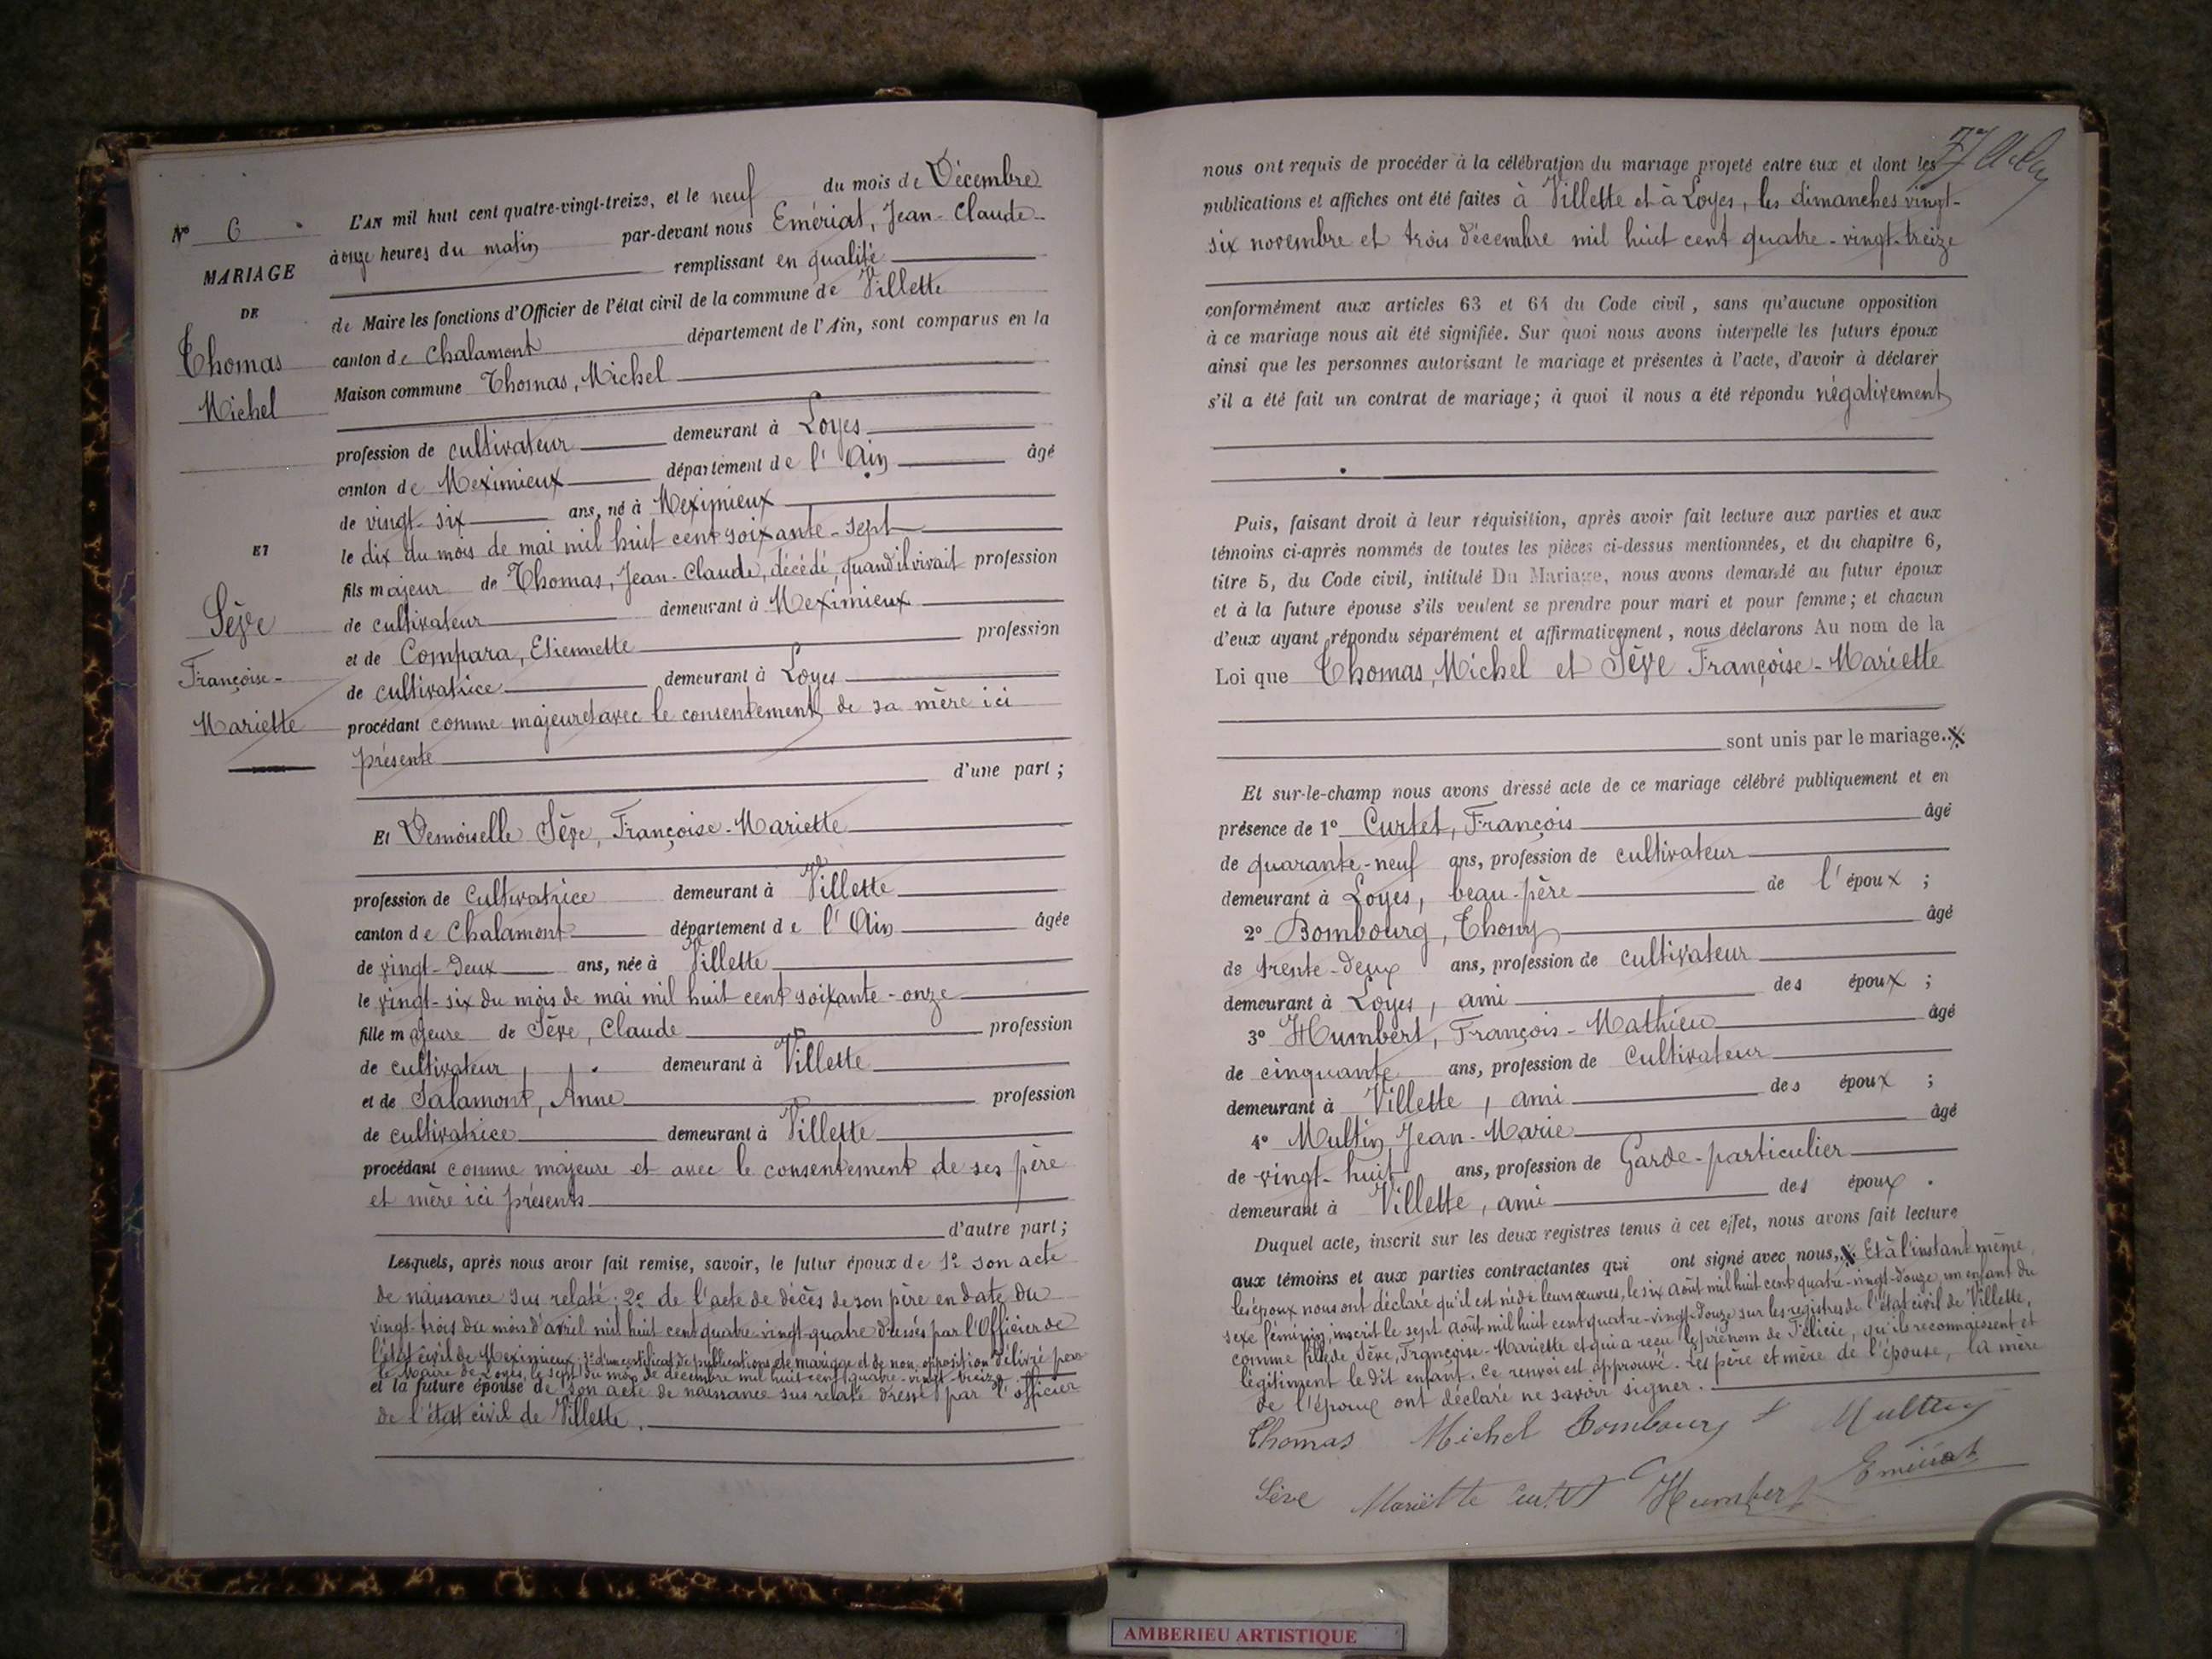 N° 6
MARIAGE
DE
Thomas
Michel
ET
Sève
Françoise-
Mariette
L'AN mil huit cent quatre-vingt-treize, et le neuf du mois de Décembre
à onze heures du matin par-devant nous Emériat, Jean-Claude-
remplissant en qualité
de Maire les fonctions d'Officier de l'état civil de la commune de Villette
canton de Chalamont département de l'Ain, sont comparus en la
Maison commune Thomas, Michel
profession de cultivateur demeurant à Loyes
canton de Meximieux département de l'Ain âgé
de vingt-six ans, né à Meximieux
le dix du mois de mai mil huit cent soixante-sept
fils majeur de Thomas, Jean-Claude, décédé, quand il vivait profession
de cultivateur demeurant à Meximieux
et de Compara, Etiennette profession
de cultivatrice demeurant à Loyes
procédant comme majeur et avec le consentement de sa mère ici
présente
d'une part;
Et Demoiselle Sève, Françoise-Mariette
profession de Cultivatrice demeurant à Villette
canton de Chalamont département de l'Ain âgée
de vingt-deux ans, née à Villette
le vingt-six du mois de mai mil huit cent soixante-onze
fille majeure de Sève, Claude profession
de cultivateur, demeurant à Villette
et de Salamont, Anne profession
de cultivatrice demeurant à Villette
procédant comme majeure et avec le consentement de ses père
et mère ici présents
d'autre part;
Lesquels, après nous avoir fait remise, savoir, le futur époux de 1° son acte
de naissance sus relaté; 2° de l'acte de décès de son père en date du
vingt-trois du mois d'avril mil huit cent quatre-vingt-quatre dressés par l'Officier de
l'état civil de Meximieux; 3° d'un certificat de publications de mariage et de non opposition délivré par
le Maire de Loyes, le sept du mois de décembre mil huit cent quatre-vingt-treize
et la future épouse de son acte de naissance sus relaté dressé par l'officier
de l'état civil de Villette.
77
nous ont requis de procéder à la célébration du mariage projeté entre eux et dont les
publications et affiches ont été faites à Villette et à Loyes, les dimanches vingt-
six novembre et trois décembre mil huit cent quatre-vingt-treize
conformément aux articles 63 et 64 du Code civil, sans qu'aucune opposition
à ce mariage nous ait été signifiée. Sur quoi nous avons interpellé les futurs époux
ainsi que les personnes autorisant le mariage et présentes à l'acte, d'avoir à déclarer
s'il a été fait un contrat de mariage; à quoi il nous a été répondu négativement
Puis, faisant droit à leur réquisition, après avoir fait lecture aux parties et aux
témoins ci-après nommés de toutes les pièces ci-dessus mentionnées, et du chapitre 6,
titre 5, du Code civil, intitulé Du Mariage, nous avons demandé au futur époux
et à la future épouse s'ils veulent se prendre pour mari et pour femme; et chacun
d'eux ayant répondu séparément et affirmativement, nous déclarons Au nom de la
Loi que Thomas, Michel et Sève Françoise-Mariette
sont unis par le mariage.
Et sur-le-champ nous avons dressé acte de ce mariage célébré publiquement et en
présence de 1° Curtet, François âgé
de quarante-neuf ans, profession de cultivateur
demeurant à Loyes, beau-père de l'époux;
2° Bombourg, Thony âgé
de trente-deux ans, profession de cultivateur
demeurant à Loyes, ami des époux;
3° Humbert, François-Mathieu âgé
de cinquante ans, profession de Cultivateur
demeurant à Villette, ami des époux;
4° Multin Jean-Marie âgé
de vingt-huit ans, profession de Garde-particulier
demeurant à Villette, ami des époux.
Duquel acte, inscrit sur les deux registres tenus à cet effet, nous avons fait lecture
aux témoins et aux parties contractantes qui ont signé avec nous, Et à l'instant même,
les époux nous ont déclaré qu'il est né de leurs œuvres, le six Août mil huit cent quatre-vingt-douze, un enfant du
sexe féminin, inscrit le sept Août mil huit cent quatre-vingt-douze sur les registres de l'état civil de Villette,
comme fille de Sève, Françoise-Mariette et qui a reçu le prénom de Félicie, qu'ils reconnaissent et
légitiment le dit enfant. Ce renvoi est approuvé. Les père et mère de l'épouse, la mère
de l'époux ont déclaré ne savoir signer.
Thomas Michel Bombourg Multin
Sève Mariette Curtet Humbert Emériat
AMBERIEU ARTISTIQUE